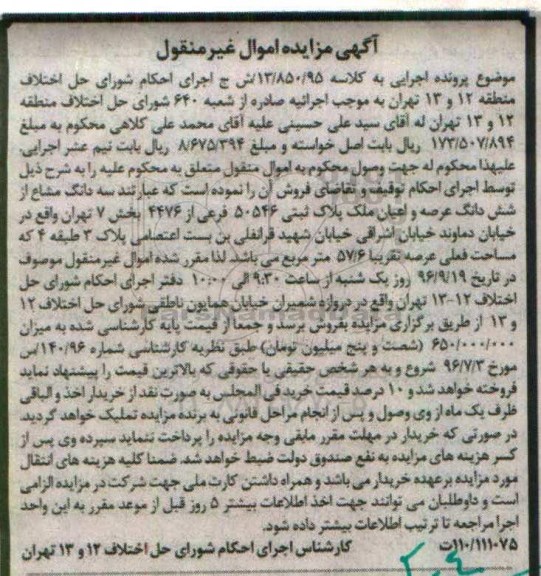 آگهی مزایده اموال غیر منقول
موضوع پرونده اجرایی به کلاسه ۱۳/۸۵۰/۹۵/ش ح اجرای احکام شورای حل اختلاف
منطقه ۱۲ و ۱۳ تهران به موجب اجرائیه صادره از شعبه ۶۴۰ شورای حل اختلاف منطقه
۱۲ و ۱۳ تهران له آقای سید علی حسینی علیه آقای محمد علی کلاهی محکوم به مبلغ
۱۷۳/۵۰۷/۸۹۴ ریال بابت اصل خواسته و مبلغ ۸/۶۷۵/۳۹۴ ریال بابت نیم عشر اجرایی.
علیهذا محکوم له جهت وصول محکوم به اموال منقول متعلق به محکوم علیه را به شرح ذیل
توسط اجرای احکام توقیف و تقاضای فروش آن را نموده است که عبارتند سه دانگ مشاع از
شش دانگ عرصه و اعیان ملک پلاک ثبتی ۵۰۵۴۶ فرعی از ۴۴۷۶ بخش ۷ تهران واقع در
خیابان دماوند خیابان اشراقی خیابان شهید قرانفلی بن بست اعتصامی پلاک ۳ طبقه ۴ که
مساحت فعلی عرصه تقریبا ۵۷/۶ متر مربع می باشد. لذا مقرر شده اموال غیرمنقول موصوف
در تاریخ ۹۶/۹/۱۹ روز یک شنبه از ساعت ۹:۳۰ الی ۱۰:۰۰ دفتر اجرای احکام شورای حل
اختلاف ۱۲-۱۳ تهران واقع در دروازه شمیران خیابان همایون ناطقی شورای حل اختلاف ۱۲
و ۱۳ از طریق برگزاری مزایده بفروش برسد و جمعا از قیمت پایه کارشناسی شده به میزان
۶۵۰/۰۰۰/۰۰۰ (شصت و پنج میلیون تومان) طبق نظریه کارشناسی شماره ۱۴۰/۹۶/س
مورخ ۹۶/۷/۳ شروع و به هر شخص حقیقی یا حقوقی که بالاترین قیمت را پیشنهاد نماید
فروخته خواهد شد و ۱۰ درصد قیمت خرید فی المجلس به صورت نقد از خریدار اخذ و الباقی
ظرف یک ماه از وی وصول و پس از انجام مراحل قانونی به برنده مزایده تملیک خواهد گردید.
در صورتی که خریدار در مهلت مقرر مابقی وجه مزایده را پرداخت ننماید سپرده وی پس از
کسر هزینه های مزایده به نفع صندوق دولت ضبط خواهد شد. ضمنا کلیه هزینه های انتقال
مورد مزایده برعهده خریدار می باشد و همراه داشتن کارت ملی جهت شرکت در مزایده الزامی
است و داوطلبان می توانند جهت اخذ اطلاعات بیشتر ۵ روز قبل از موعد مقرر به این واحد
اجرا مراجعه تا ترتیب اطلاعات بیشتر داده شود.
۱۱۰/۱۱۱۰۷۵ت کارشناس اجرای احکام شورای حل اختلاف ۱۲ و ۱۳ تهران